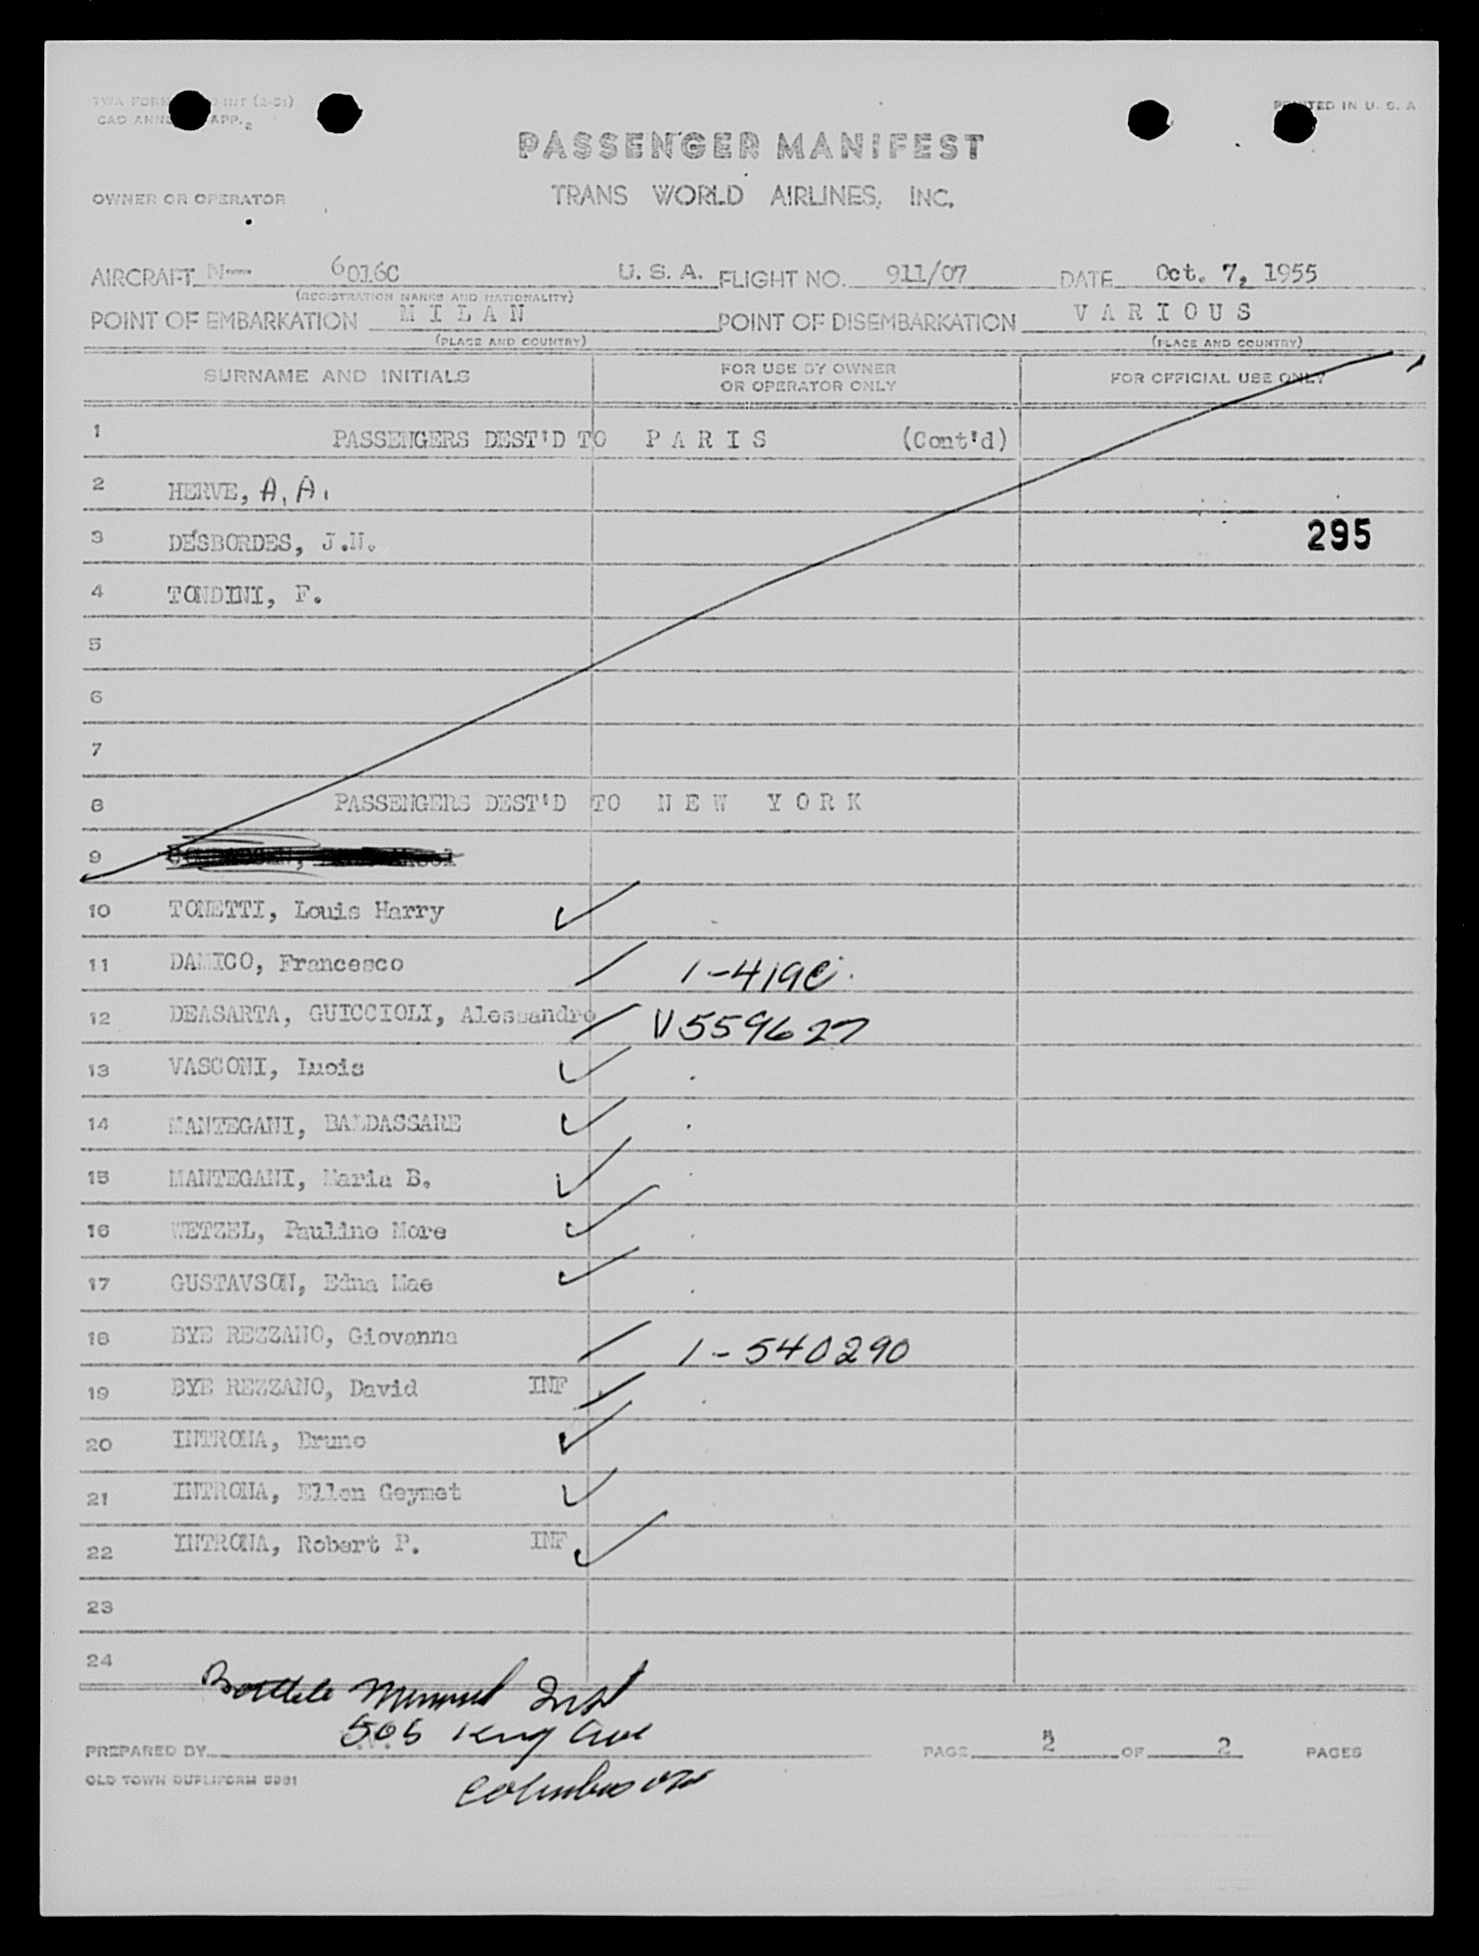 PRINTED IN U. S. A
CAO ANNEX APP. 2
PASSENGER MANIFEST
OWNER OR OPERATOR TRANS WORLD AIRLINES, INC.
AIRCRAFT N--- 6016C U. S. A. FLIGHT NO. 911/07 DATE Oct. 7, 1955
(REGISTRATION MARKS AND NATIONALITY)
POINT OF EMBARKATION M I L A N POINT OF DISEMBARKATION V A R I O U S
(PLACE AND COUNTRY) (PLACE AND COUNTRY)
SURNAME AND INITIALS FOR USE BY OWNER OR OPERATOR ONLY FOR OFFICIAL USE ONLY
1 PASSENGERS DEST'D TO P A R I S (Cont'd)
2 HERVE, A. A.
3 DESBORDES, J.N. 295
4 TONDINI, F.
5
6
7
8 PASSENGERS DEST'D TO N E W Y O R K
9
10 TONETTI, Louis Harry
11 DAMICO, Francesco 1-419C
12 DEASARTA, GUICCIOLI, Alessandro V559627
13 VASCONI, Luois
14 MANTEGANI, BALDASSARE
15 MANTEGANI, Maria B.
16 WETZEL, Pauline More
17 GUSTAVSON, Edna Mae
18 BYE REZZANO, Giovanna 1-540290
19 BYE REZZANO, David INF
20 INTRONA, Bruno
21 INTRONA, Ellen Geymet
22 INTRONA, Robert P. INF
23
24
Inst
505 King Ave
PREPARED BY PAGE 2 OF 2 PAGES
OLD TOWN DUPLIFORM 5981
Columbus